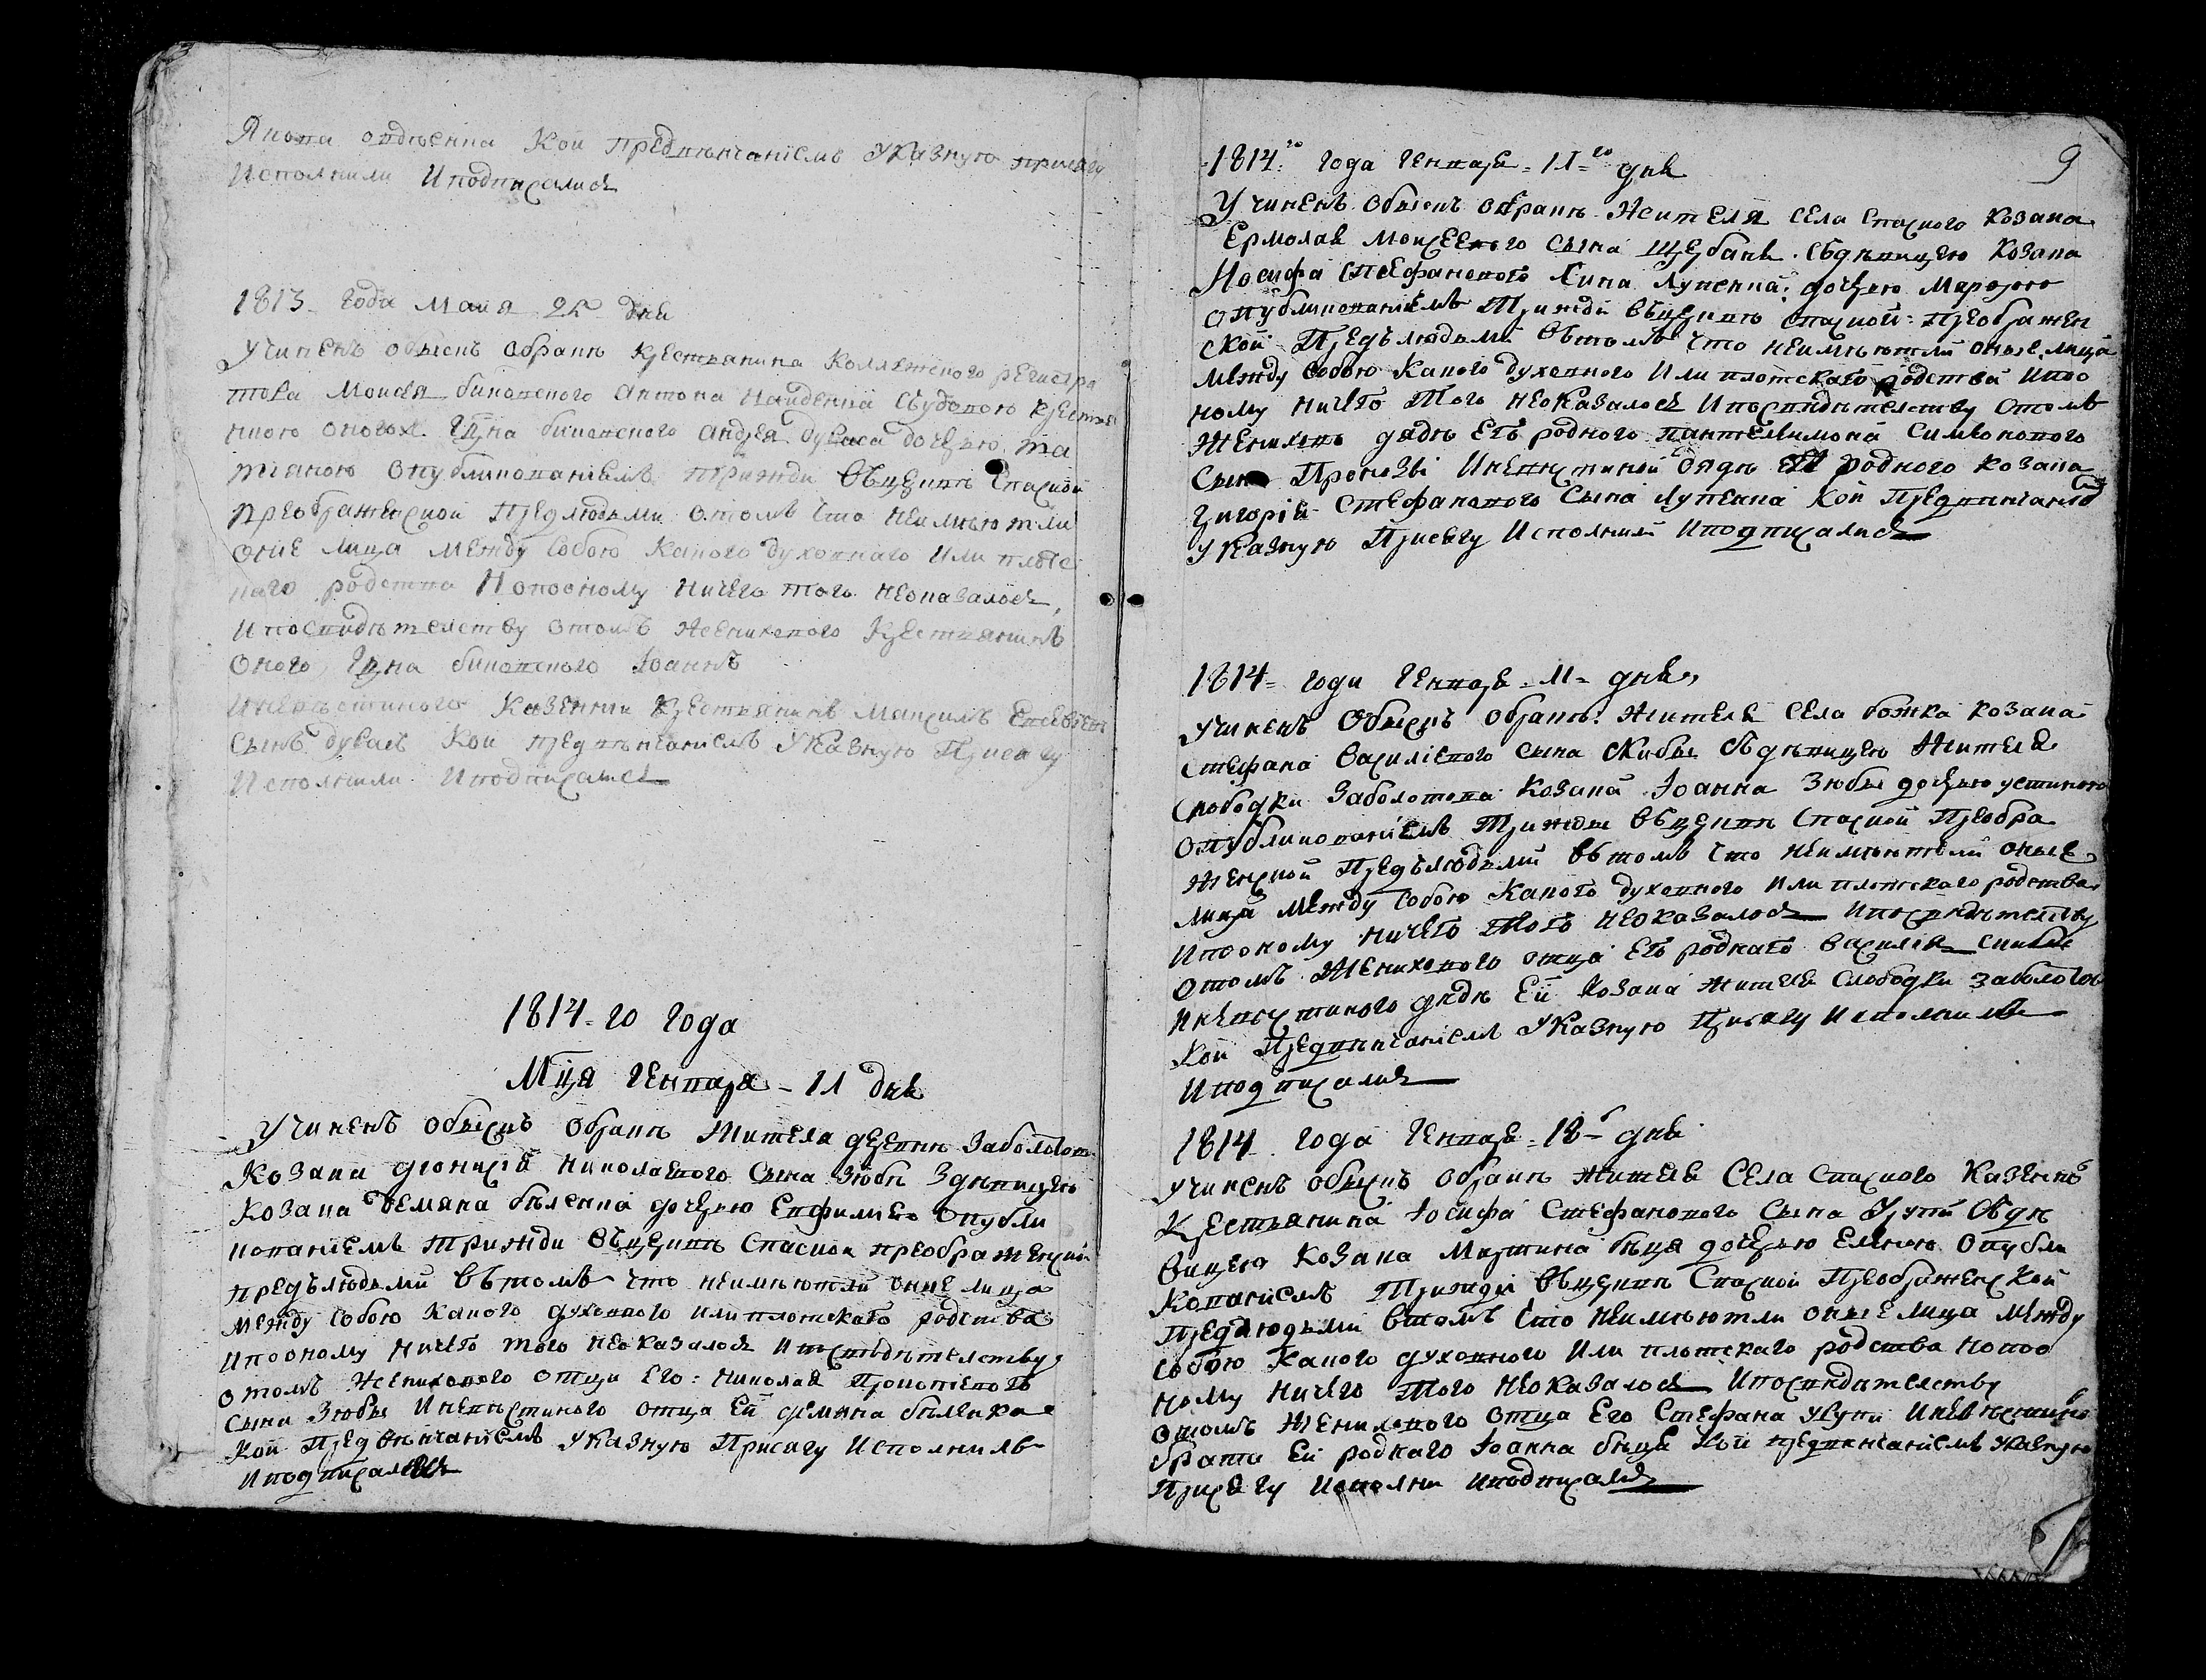 Якова овдѣенка Кои предвѣнчаніемъ Указную присягу
Исполнили Иподписались
1813 года Маия 25 дня
Учиненъ обыскъ обракѣ крестьянина Коллежского регистра
тора Моисея биковского Антона Найденка Съудовою крестян
кою оногож Гдна биковского Андрея дукаса дочерью та
тияною опубликованіемъ трижди Въцеркви Спаской
преображенской предлюдьми отомъ что неимѣютли
оние лица между собою какого духовнаго или плотс
каго родства Ипооному ничего того неоказалось,
Ипосвидѣтелству отомъ Женихового крестянинъ
оного Гдна биковского Іоаннъ
Иневѣстиного Казенни крестьянинъ Максимъ
Сынъ дукасъ Кои предвѣнчаніемъ Указную Присягу
Исполнили Иподписались
1814-го года
Мця Генваря - 11 дня
Учиненъ обыскъ обракѣ Жителя деревни Заболотя
Козака дионисія Николаевого сына Зюбы Здѣвицею
Козака демяна беленка дочерю Евфимиею опубли
кованіемъ трижди Въцеркви Спаской преображенской
предълюдьми вътомъ что неимѣютли оние лица
между собою какого духовного или плотскаго родства
ипооному ничего того неоказалось Ипосвидѣтелству
отомъ Женихового отца его: Николая Прокопіевого
сына Зюбы Иневѣстиного отца ей демяна беленка
Кой Предвѣнчаніемъ Указную Присягу Исполниль
Иподписались
9
1814:го года Генваря = 11=го дня
Учиненъ обыскъ обракѣ Жителя села Спаского козака
Ермолая Моисеевого сына Щербаня Съдѣвицею козака
Иосифа Стефанового Сина Луценка дочерю Марфою
опубликованіемъ Трижди Въцеркви спаской: преображен
ской Предълюдьми Вътомъ что неимѣютли оные лица
между собою какого духовного Или плотскаго родства Ипоо
ному ничего Того неоказалось Ипосвидѣтелству отомъ
Жениховъ дядѣ его родного пантелимона Симоновог
Сына Иневѣстиной дядѣ ей родного козака
Григорія Стефанового Сына Луценка Кои Предвѣнчаніем
Указную Присягу Исполнили Иподписались
1814= года Генваря = 11= дня
Учиненъ Обыскъ обракѣ: Жителя села божка козака
Стефана Василіевого сына Скибы Съдѣвицею Жителя
слободки Заболотова козака Іоанна Зюбы дочерю устиною
опубликованіемъ Трижды Въцеркви Спаской Преобра
женской Предълюдьми вътомъ что неимѣютли оные
лица между собою какого духовного или плотскаго родства
Ипооному ничего Того неоказалось Ипосвидѣтелству
отомъ Жениховаго отца его роднаго василія Скибы
Иневѣстиного дядѣ Ей козака жителя слободки заболотов
Кои Предвѣнчаніемъ Указную Присягу Исполниль
Иподписались
1814 года Генваря = 18= дня
Учиненъ обыскъ обракѣ жителя Села Спаского Казенного
Крестьянина Іосифа Стефанового Сына Съдѣ
вицею Козака Мартина быця дочерью Еленою Опубли
кованіемъ Трижди Въцеркви Спаской Преображенской
Предлюдьми втомъ что неимѣютли оные лица между
собою какого духовного или плотскаго родства Ипоо
ному ничего Того неоказалось Ипосвидѣтелству
отомъ Жениховаго отца Его Стефана Иневѣстиного
брата Ей роднаго Іоанна быця Кои предвѣнчаніемъ указную
Присягу Исполни Иподписались